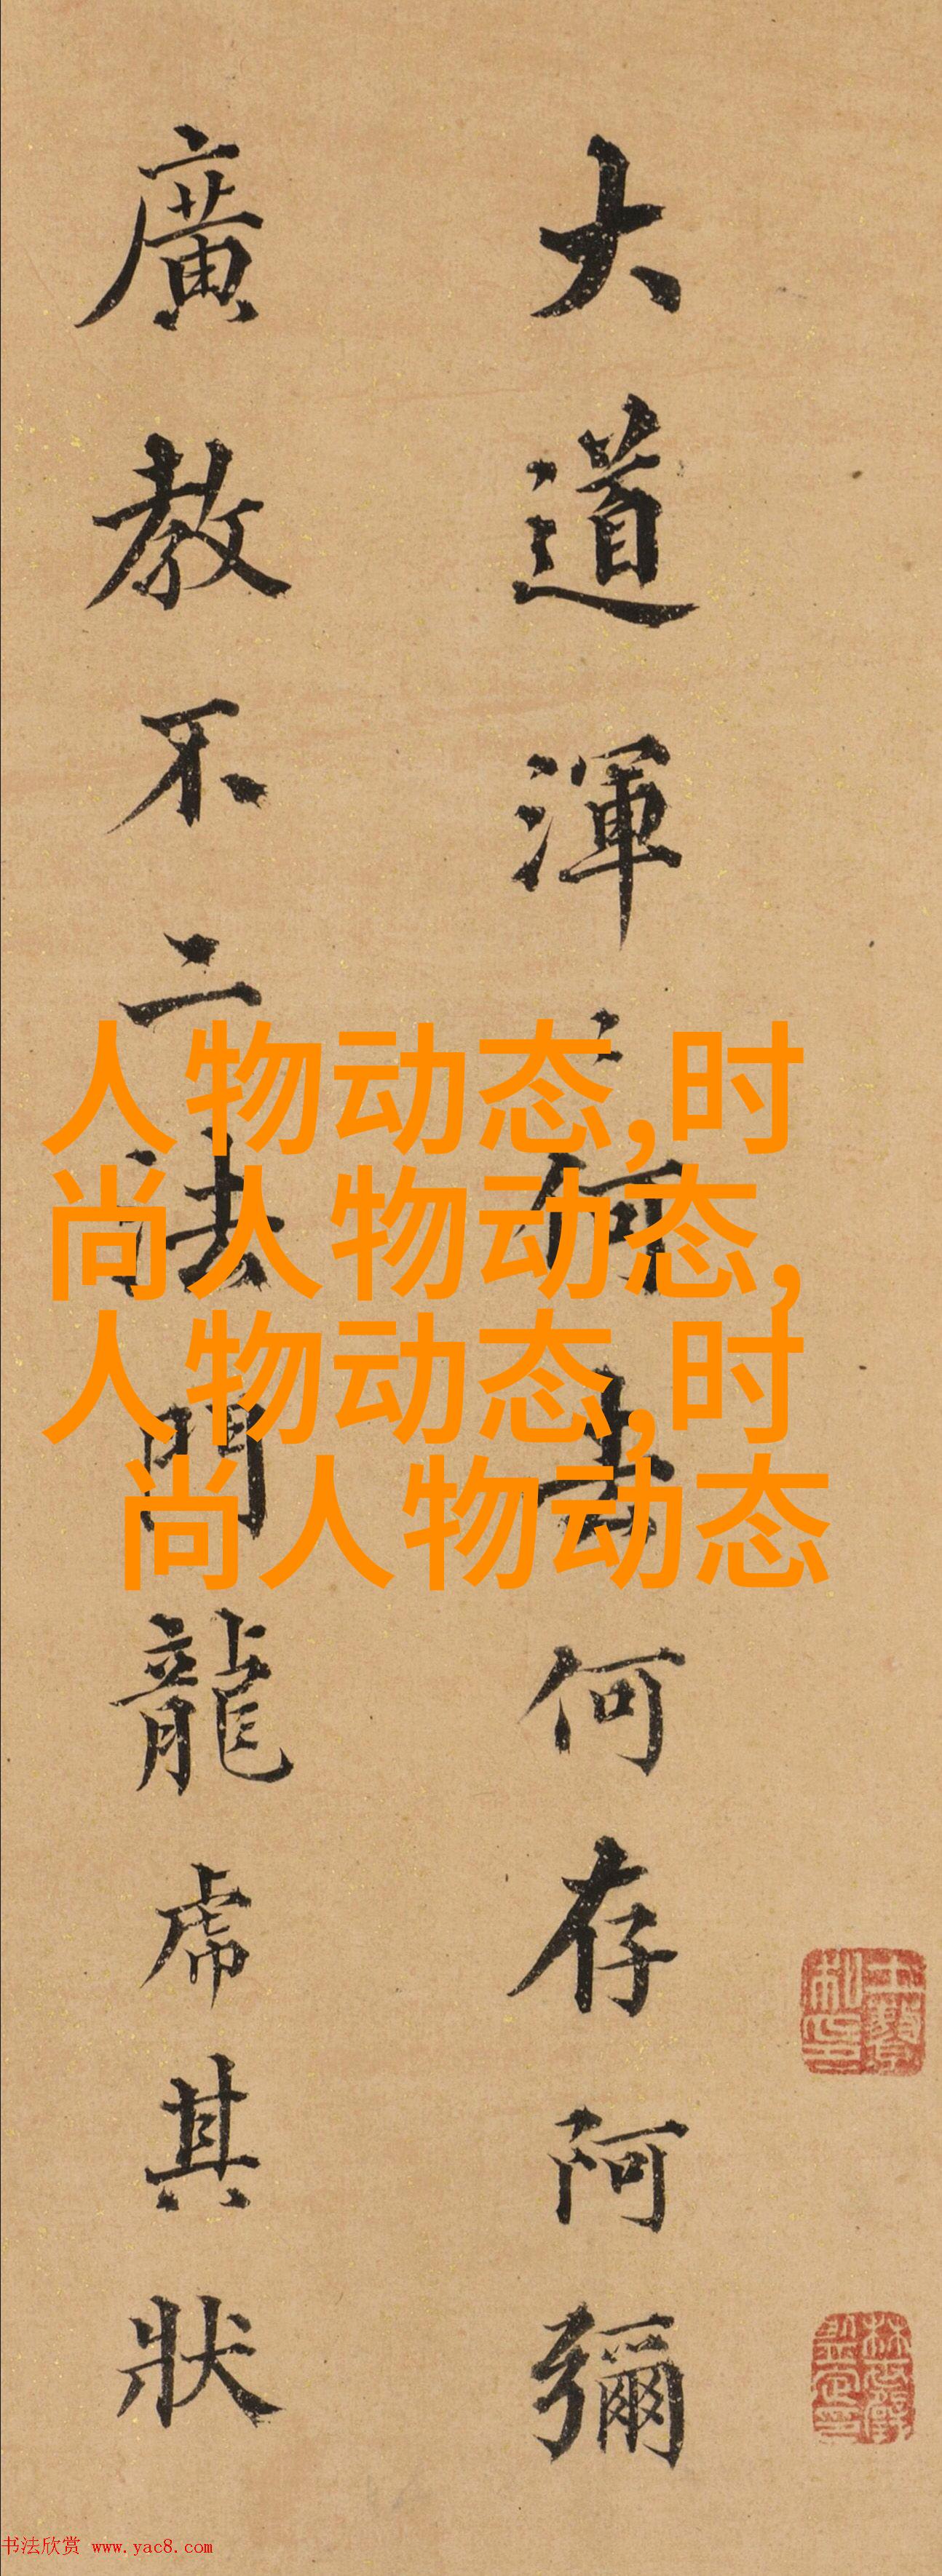 大道渾〻何去何存阿彌
廣教不二法門龍虎其狀
人物动态,时
尚人物动态,
人物动态,时
尚人物动态
书法欣赏 www.yac8.com